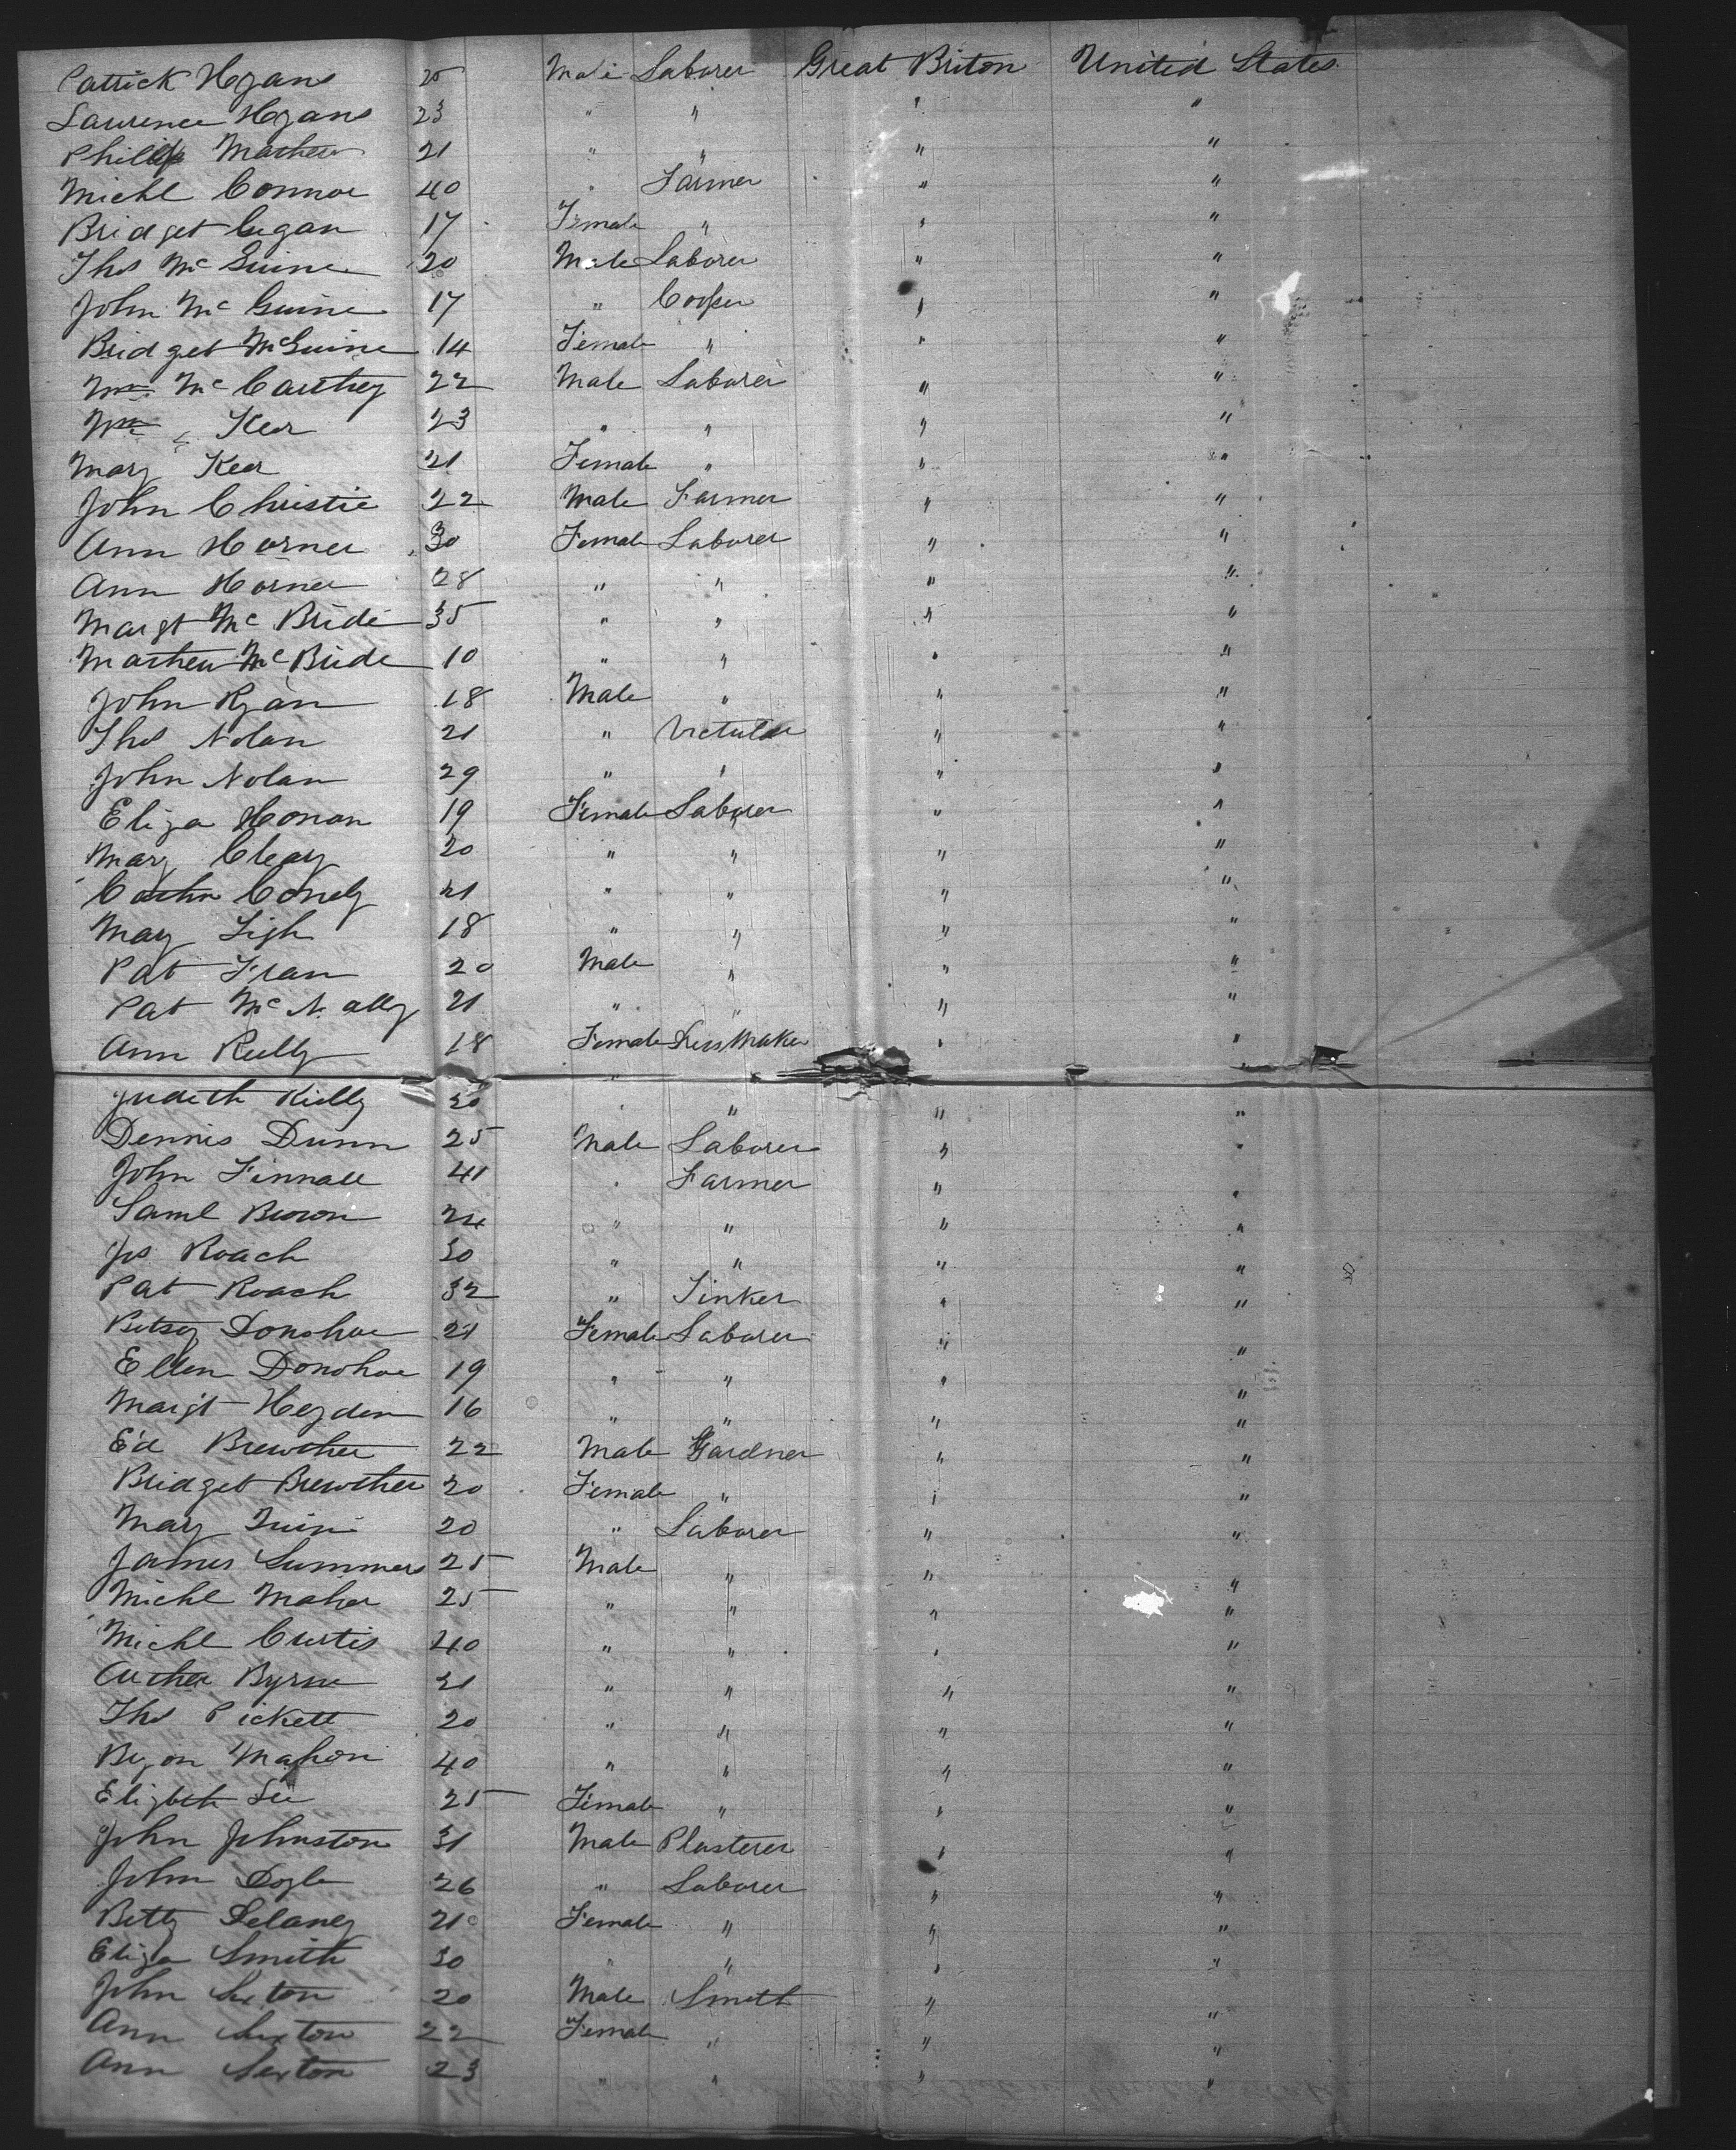 Patrick Hogans 25 Male Laborer Great Briton United States
Laurence Hogans 23 " " " "
Philip Mathew 21 " " " "
Michl Connor 40 " Farmer " "
Bridget Cegan 17 Female " " "
Thos McGuine 20 Male Laborer " "
John McGuine 17 " Cooper " "
Bridget McGuine 14 Female " " "
Wm McCarthey 22 Male Laborer " "
Wm Kear 23 " " " "
Mary Kear 21 Female " " "
John Christie 22 Male Farmer " "
Ann Horner 30 Female Laborer " "
Ann Horner 28 " " " "
Margt McBride 35 " " " "
Mathew McBride 10 " " " "
John Ryan 18 Male " " "
Thos Nolan 21 " Victuler " "
John Nolan 29 " " " "
Eliza Honan 19 Female Laborer " "
Mary Cleary 20 " " " "
Cathn Conely 21 " " " "
Mary Ligh 18 " " " "
Pat Fran 20 Male " " "
Pat McNally 21 " " " "
Ann Reilly 18 Female Dress Maker " "
Judeth Kielly 20 " " " "
Dennis Dunn 25 Male Laborer " "
John Finnall 41 " Farmer " "
Saml Brown 24 " " " "
Js Roach 30 " " " "
Pat Roach 32 " Tinker " "
Betsey Donohoe 21 Female Laborer " "
Ellen Donohoe 19 " " " "
Margt Heyden 16 " " " "
Ed Brewther 22 Male Gardner " "
Bridget Brewther 20 Female " " "
Mary Quin 20 " Laborer " "
James Summers 25 Male " " "
Michl Maher 25 " " " "
Michl Curtis 40 " " " "
Auther Byrne 21 " " " "
Thos Pickett 20 " " " "
Byon Mahon 40 " " " "
Elizbeth Lee 25 Female " " "
John Johnston 31 Male Plasterer " "
John Dogle 26 " Laborer " "
Betty Delaney 21 Female " " "
Eliza Smith 30 " " " "
John Sexton 20 Male Smith " "
Ann Sexton 22 Female " " "
Ann Sexton 23 " " " "